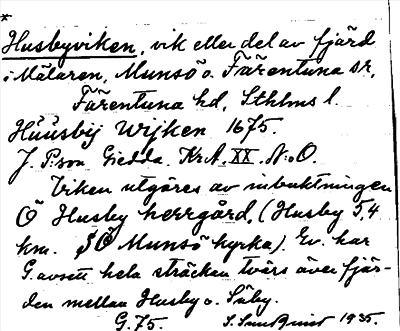 *
Husbyviken, vik eller del av fjärd
i Mälaren, Munsö o. Färentuna sr,
Färentuna hd, Sthlms l.
Hüüsbij Wijken 1675.
J. P:son Giedda. Kr.A. XX. N:o O.
Viken utgöres av inbuktningen
Ö Husby herrgård, (Husby 5,4
km. SÖ Munsö kyrka). Ev. har
G. avsett hela sträckan tvärs över fjär-
den mellan Husby o. Säby.
G. 75. S. Sundquist 1935.